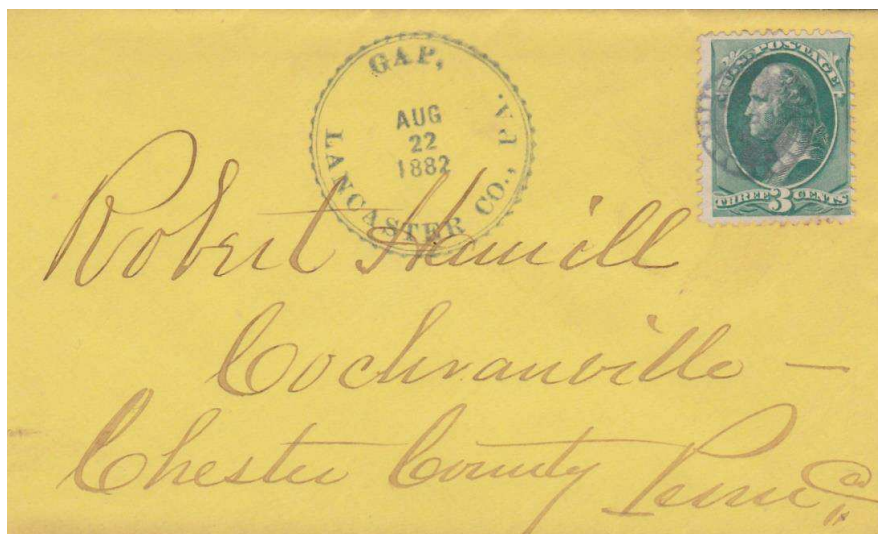 GAP,
LANCASTER CO., PA.
AUG
22
1882
U.S. POSTAGE
THREE 3 CENTS
Robert Hamill
Cochranville —
Chester County Penna